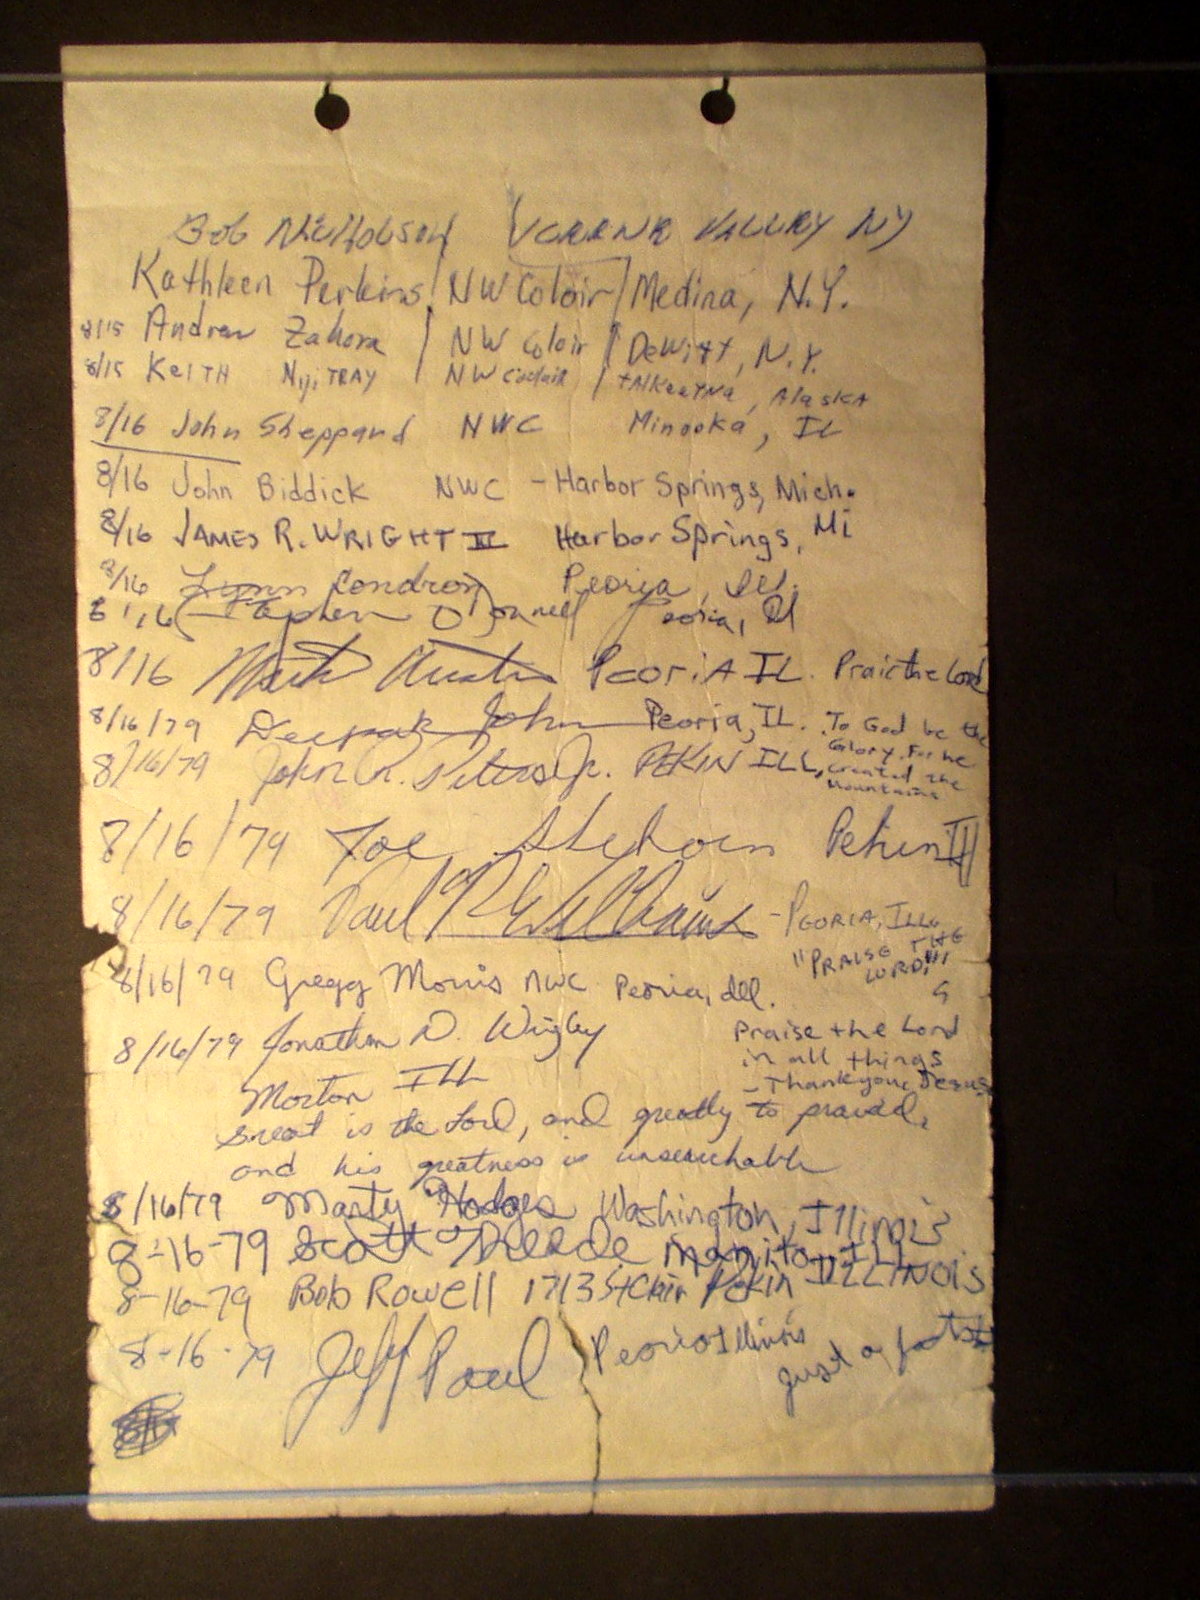 Bob Nicholson NY
Kathleen Perkins / NW Coloir / Medina, N.Y.
8/15 Andrew Zahora / NW Coloir / DeWitt, N.Y.
8/15 KeITH / NW / TAlKeeTNa, AlaskA
8/16 John Sheppard NWC Minooka, IL
8/16 John Biddick NWC - Harbor Springs, Mich.
8/16 JAMES R. WRIGHT II Harbor Springs, Mi
8/16 Lynn Condron Peoria, Ill.
8/16 Stephen O'Donnell Peoria, Il
8/16 PeoriA IL. the Lord
8/16/79 Deepak John Peoria, IL. To God be the
Glory. For he
created the
Mountains
8/16/79 John R. Peters Jr. PEKIN ILL,
8/16/79 Joe Pekin Ill
8/16/79 Paul Williams - PEORIA, ILL.
"PRAISE THE
LORD!"
8/16/79 Gregg Morris NWC Peoria, Ill.
8/16/79 Jonathan D. Wrigley
Morton ILL
Praise the Lord
in all things
- Thankyou, Jesus
Great is the Lord, and greatly to praised,
and his greatness is unsearchable
8/16/79 Marty Hodges Washington, Illinois
8-16-79 Scott manito ILL
8-16-79 Bob Rowell 1713 StClair PeKin ILLINOis
8-16-79 Jeff Paul Peoria Illinois
just a